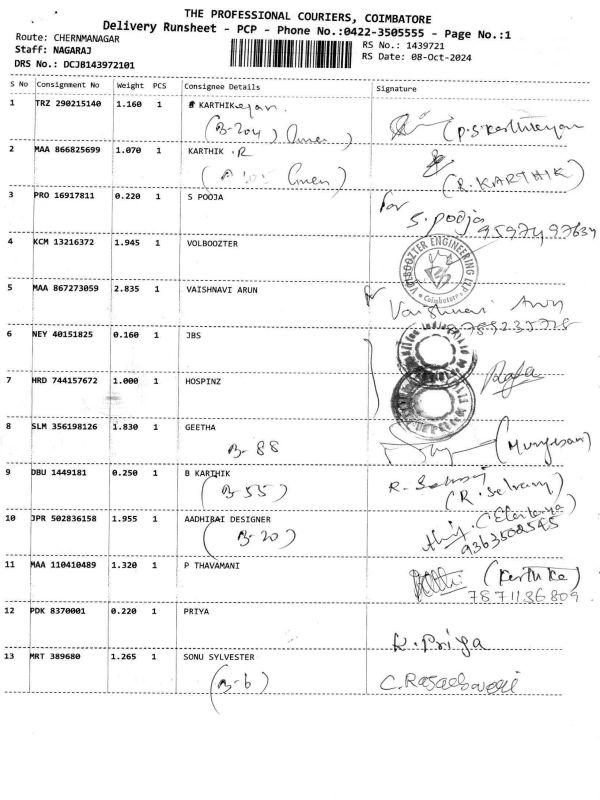 THE PROFESSIONAL COURIERS, COIMBATORE
Delivery Runsheet - PCP - Phone No.:0422-3505555 - Page No.:1
Route: CHERNMANAGAR
RS No.: 1439721
Staff: NAGARAJ
RS Date: 08-Oct-2024
DRS No.: DCJB143972101
S No Consignment No Weight PCS Consignee Details Signature
1 TRZ 290215140 1.160 1 KARTHIKeyan.
(B-204) (P.S.Karthikeyan
2 MAA 866825699 1.070 1 KARTHIK .R
(R.KARTHIK)
3 PRO 16917811 0.220 1 S POOJA for
S.Pooja
9597497634
4 KCM 13216372 1.945 1 VOLBOOZTER
VOLBOOZTER ENGINEERING LLP
Coimbatore
5 MAA 867273059 2.835 1 VAISHNAVI ARUN for
Vaishnavi Arun
6 NEY 40151825 0.160 1 JBS
7 HRD 744157672 1.000 1 HOSPINZ Raja
8 SLM 356198126 1.830 1 GEETHA
B-88 (Murugesan)
9 DBU 1449181 0.250 1 B KARTHIK
(B-55) (R.Selvam)
10 JPR 502836158 1.955 1 AADHIRAI DESIGNER
(B-20) 9363502545
11 MAA 110410489 1.320 1 P THAVAMANI (Karthika)
7871136809
12 PDK 8370001 0.220 1 PRIYA
K.Priya
13 MRT 389680 1.265 1 SONU SYLVESTER
(B-6)